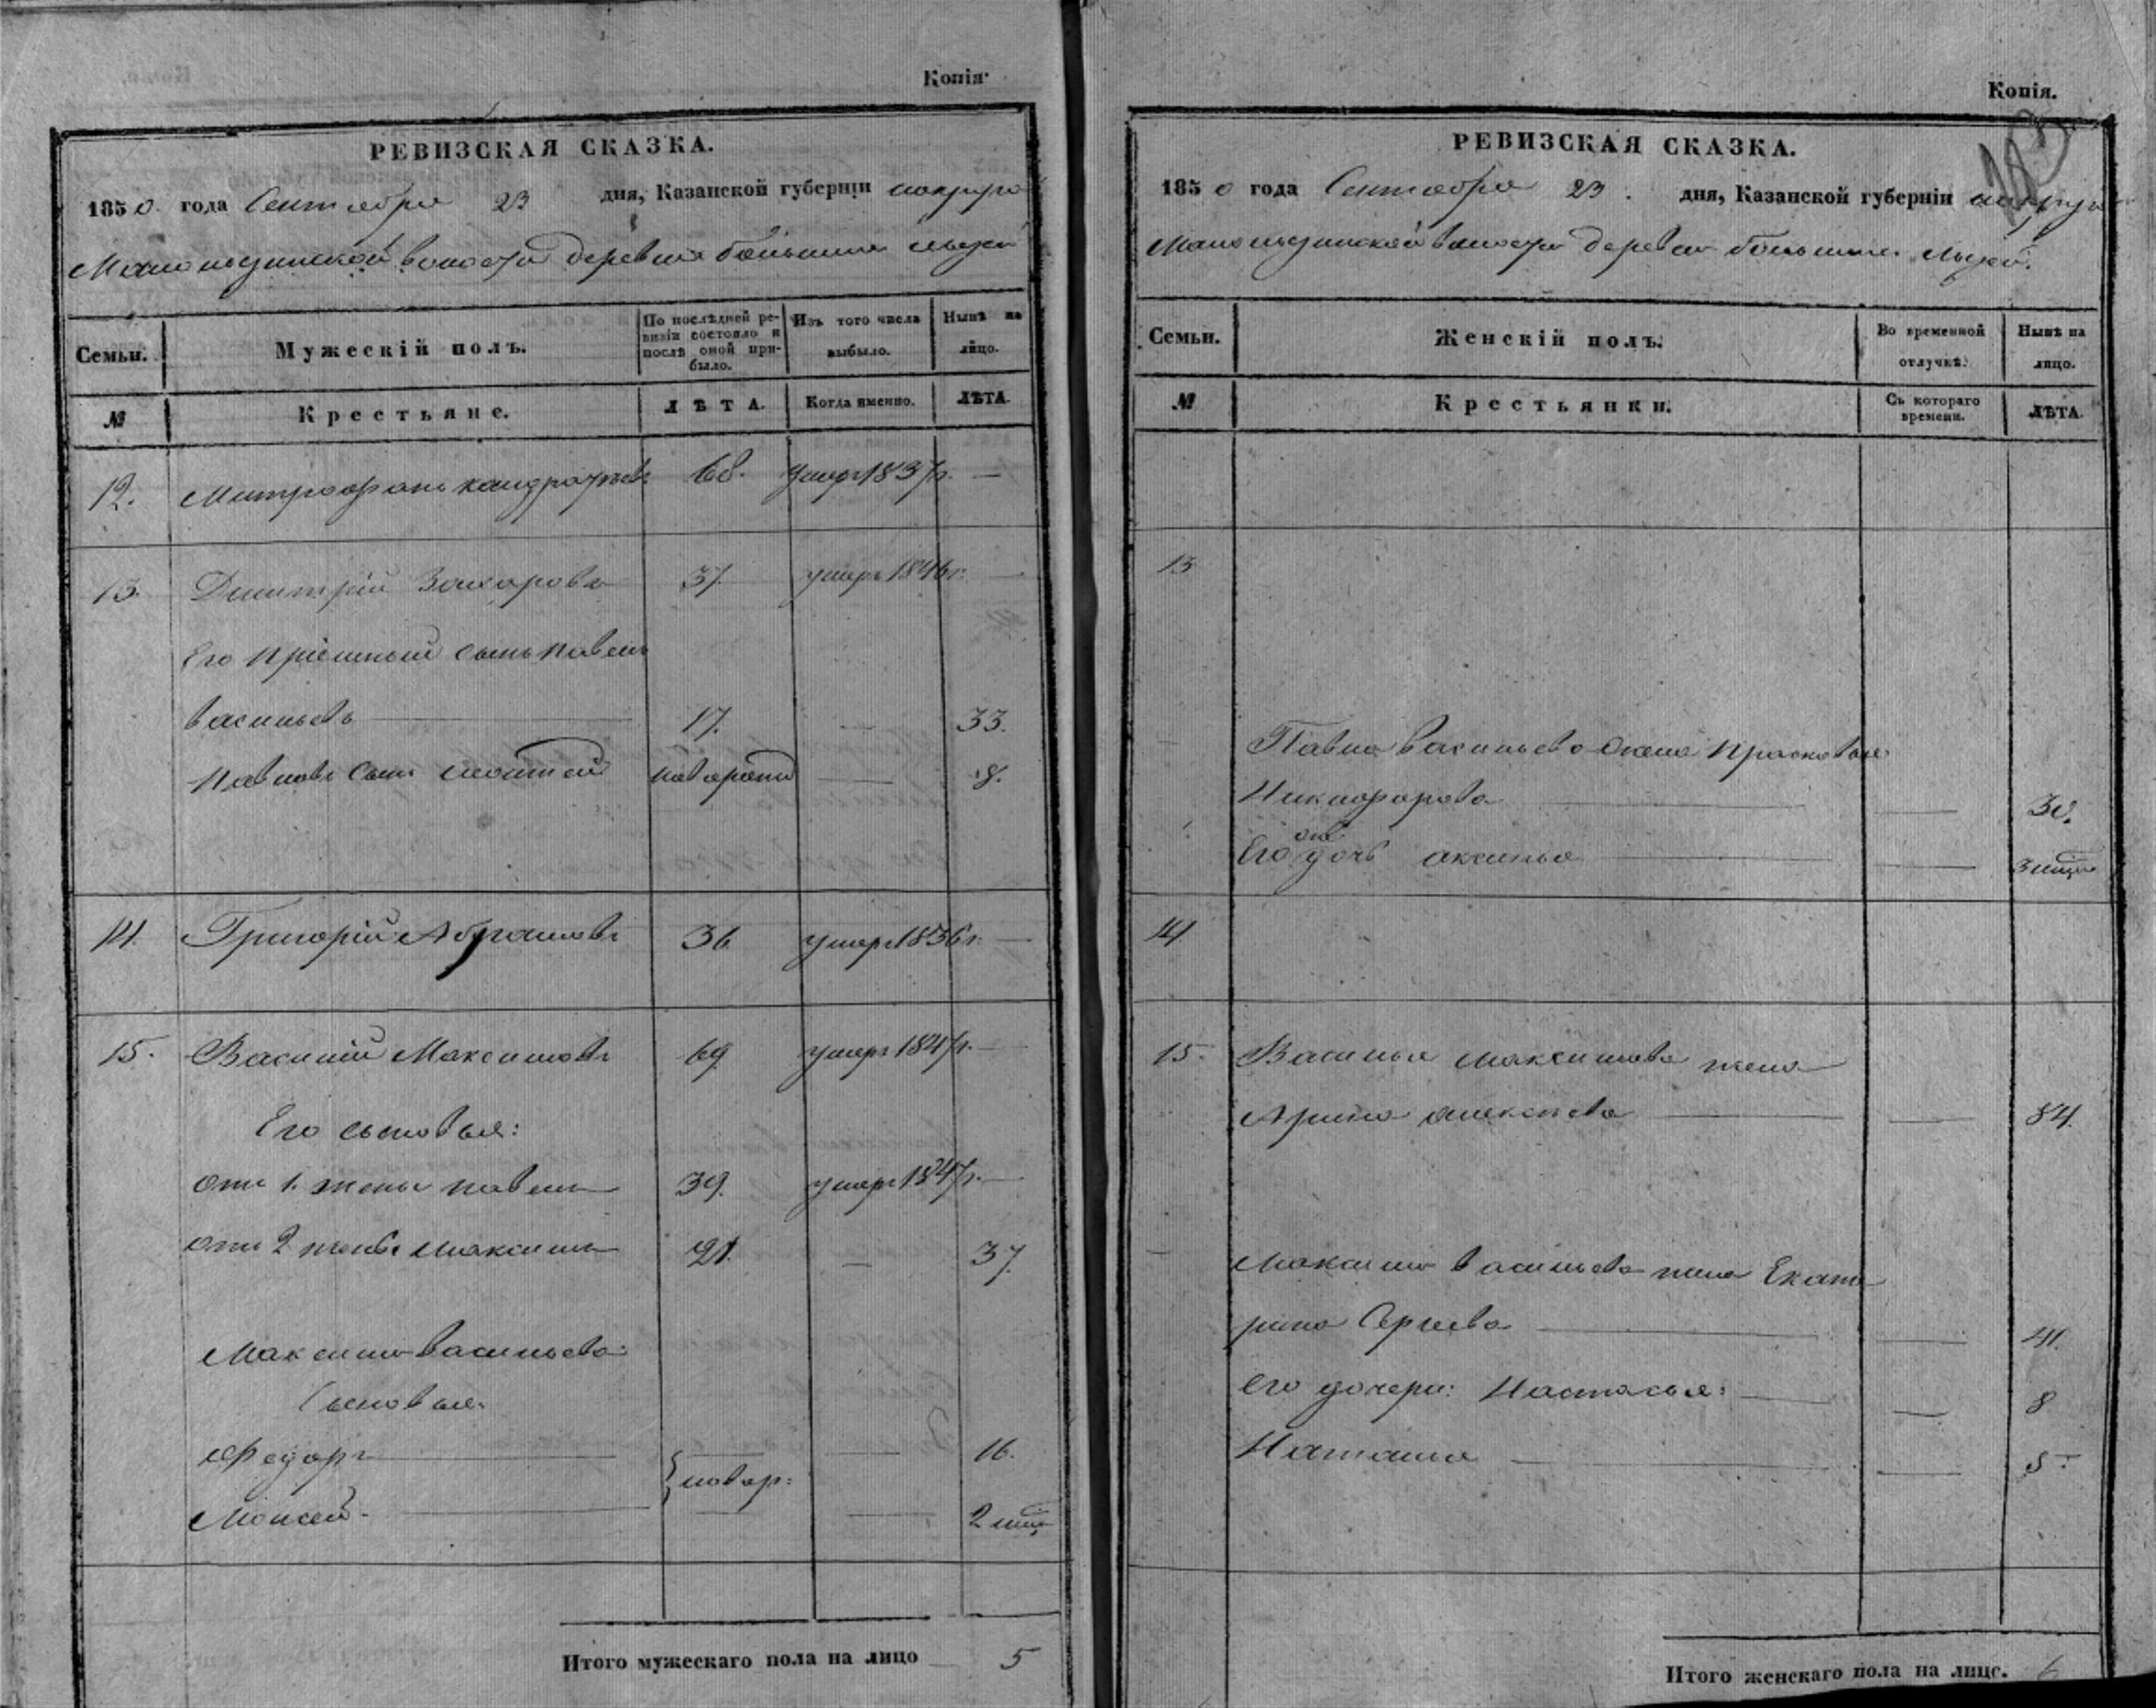 Копія.
РЕВИЗСКАЯ СКАЗКА.
1850. года Сентября 23 дня, Казанской губерніи
волости деревни большихъ
Семьи. Мужескій полъ. По послѣдней ревизіи состояло и послѣ оной прибыло. Изъ того числа выбыло. Нынѣ на лицо.
№ Крестьяне. ЛѢТА. Когда именно. ЛѢТА.
12. Митрофанъ кандратьевъ 68. умеръ 1837 г. —
13. Дмитрій Захарова 37 умеръ 1846 г. —
Его пріемный сынъ павелъ
васильевъ 17. — 33.
павлова сынъ новорожд — 8.
14. Григорій Абрамовъ 36 умеръ 1836 г. —
15. Василій Максимовъ 69 умеръ 1847 г. —
Его сыновья:
отъ 1. жены павелъ 39. умеръ 1847 г. —
отъ 2 жены максимъ 21. — 37.
Максима васильева
Сыновья:
Федоръ — 16.
} новор:
Моисей — 2 мѣс
Итого мужескаго пола на лицо 5
Копія.
РЕВИЗСКАЯ СКАЗКА.
1850 года Сентября 23. дня, Казанской губерніи
волости деревни большихъ
Семьи. Женскій полъ. Во временной отлучкѣ. Нынѣ на лицо.
№ Крестьянки. Съ котораго времени. ЛѢТА.
13
Павла васильева жена прасковья
Никифорова — 30.
Его дочь аксинья —
14
15. Василья максимова жена
Арина алексѣева — 84.
Максима васильева жена Екате
рина Сергѣева — 41.
Его дочери: Настасья: — 8
Наталья — 5
Итого женскаго пола на лице. 6